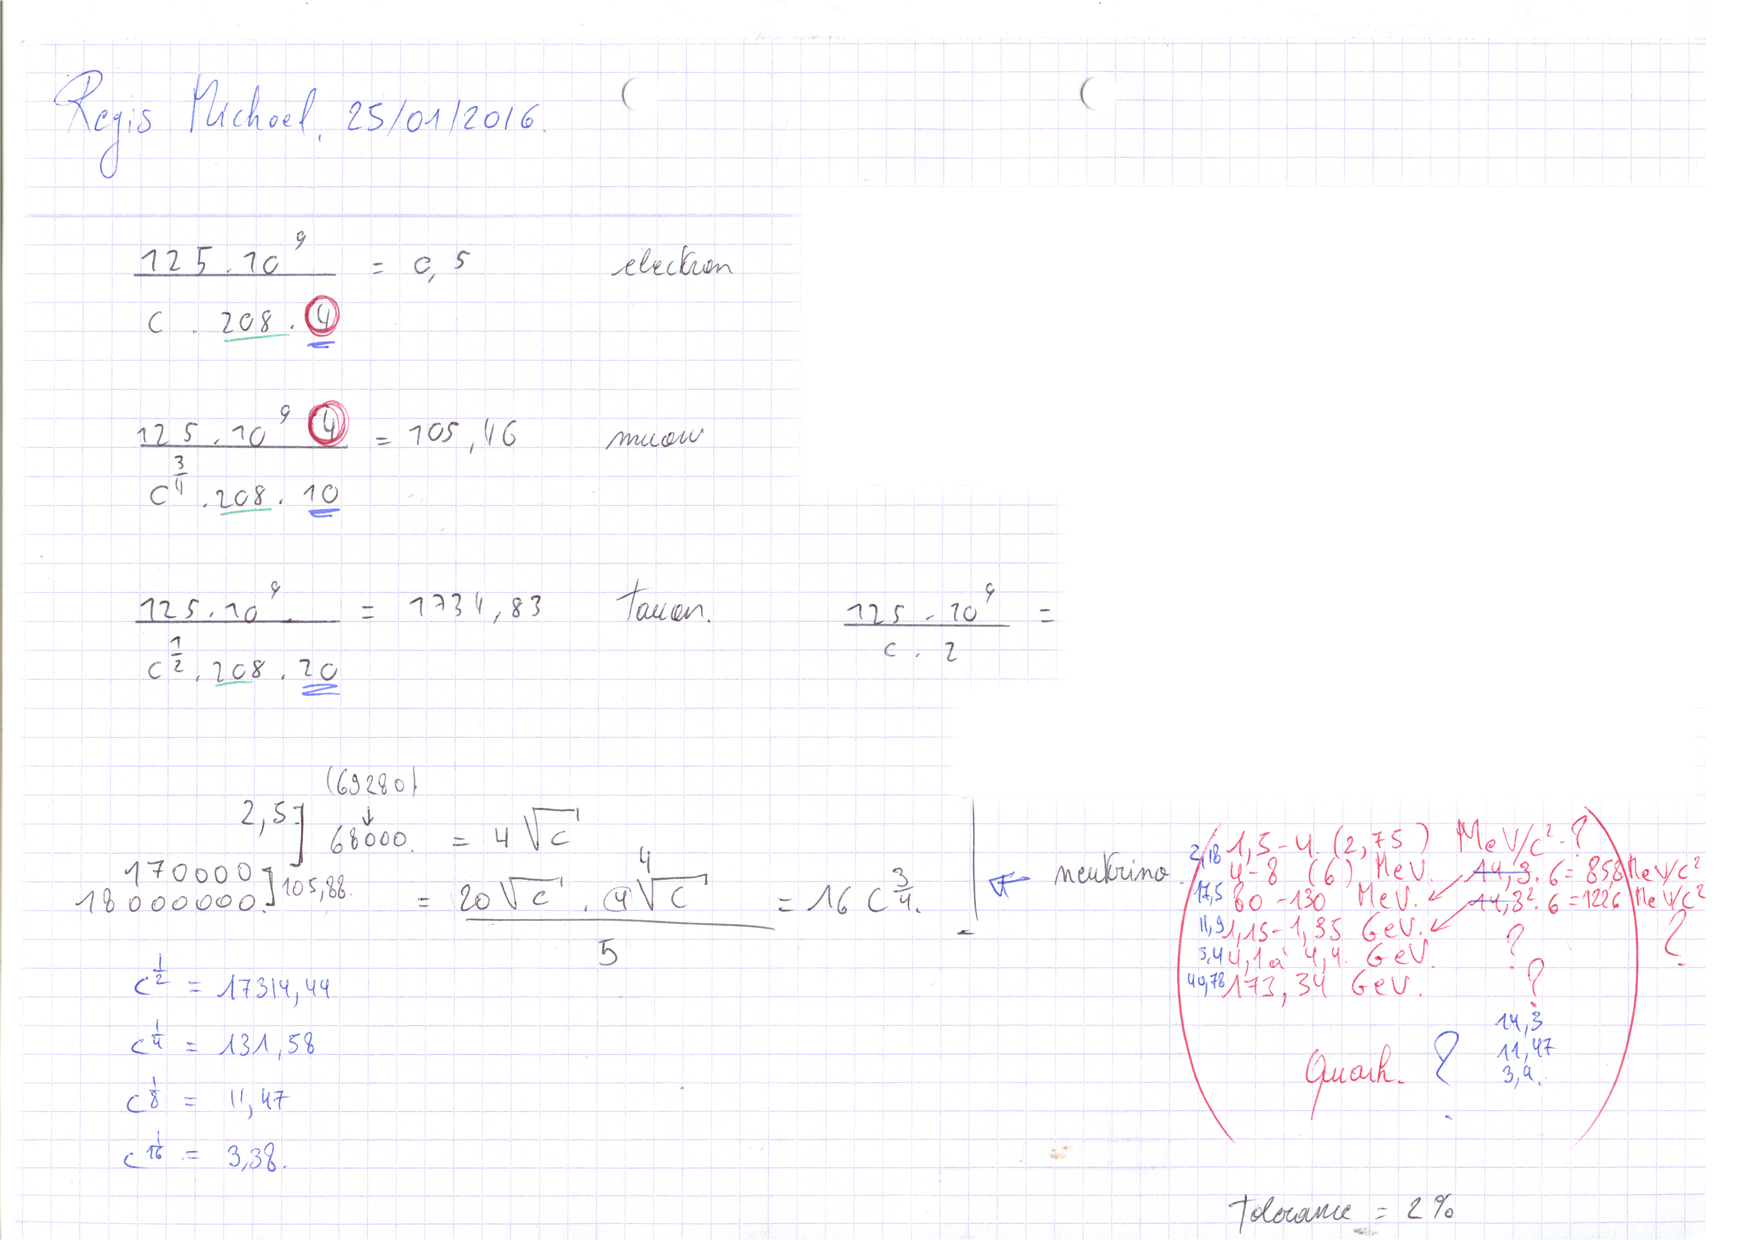 Regis Michael. 25/01/2016.
125.10^9 / (c . 208 . 4) = 0,5 electron
125.10^9 4 / (c^(3/4) . 208 . 10) = 105,46 muon
125.10^9 / (c^(1/2) . 208 . 20) = 1734,83 tauon.
125.10^9 / (c . 2) =
(69280)
↓
2,5 ] 68000. = 4 √c
170000
18 000000. ] 105,88. = (20 √c . 4 ⁴√c) / 5 = 16 c^(3/4). ← neutrino.
c^(1/2) = 17314,44
c^(1/4) = 131,58
c^(1/8) = 11,47
c^(1/16) = 3,38.
2,18 1,5-4 (2,75) MeV/c² ?
4-8 (6) MeV. 14,3.6 = 85,8 MeV/c²
17,5 80-130 MeV. ← 14,3².6 = 1226 MeV/c²
11,9 1,15-1,35 GeV. ← ? ?
3,4 4,1 à 4,4 GeV. ?
40,78 173,34 GeV. ?
14,3
11,47
3,4.
Quark. ?
Tolerance = 2%